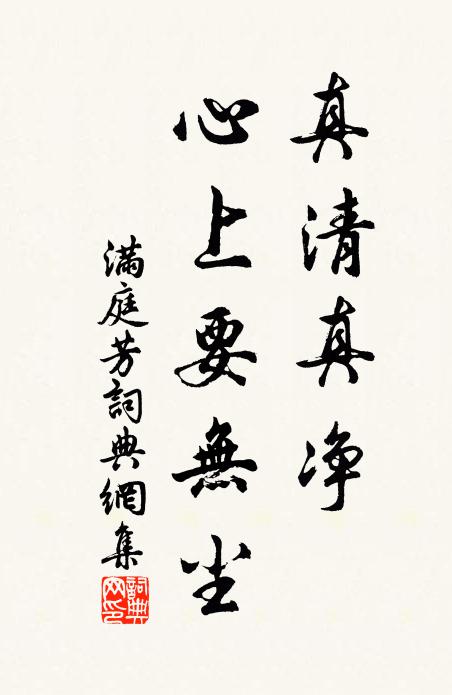 真清真净
心上要無尘
满庭芳詞典網集
詞典網印